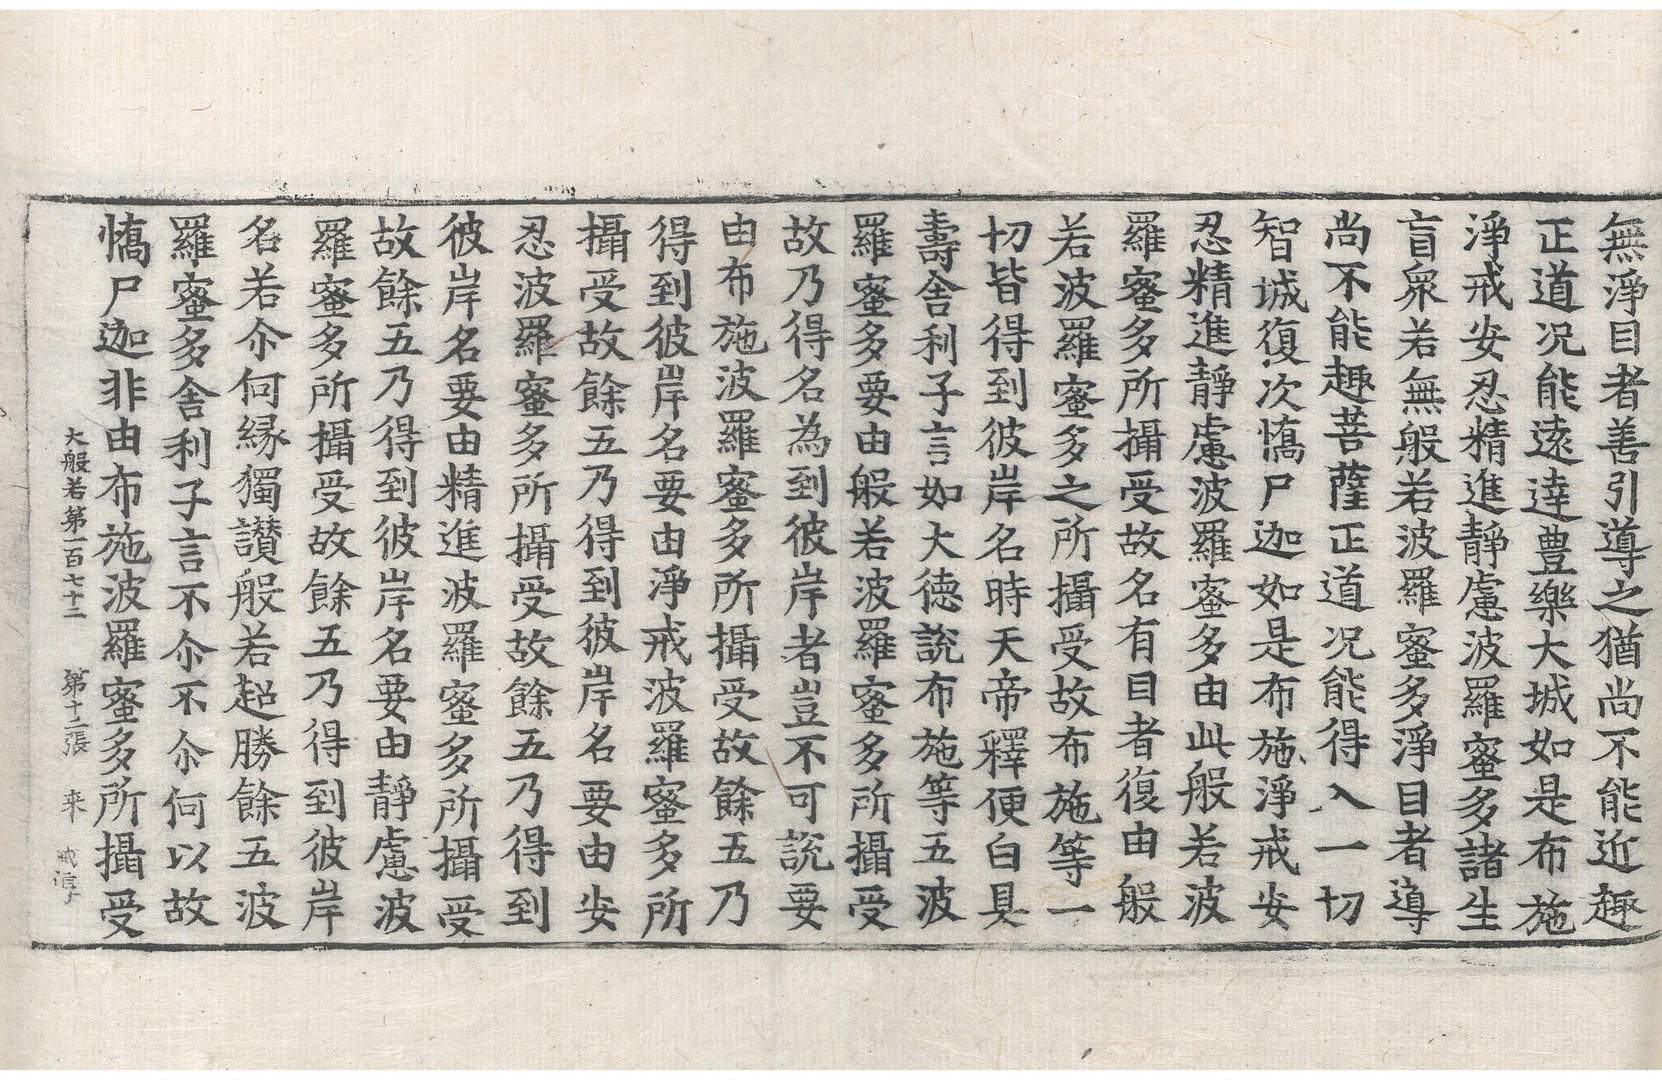 無淨目者善引導之猶尚不能近趣
正道况能遠達豊樂大城如是布施
淨戒安忍精進靜慮波羅蜜多諸生
盲衆若無般若波羅蜜多淨目者導
尚不能趣菩薩正道况能得入一切
智城復次憍尸迦如是布施淨戒安
忍精進靜慮波羅蜜多由此般若波
羅蜜多所攝受故名有目者復由般
若波羅蜜多之所攝受故布施等一
切皆得到彼岸名時天帝釋便白具
壽舍利子言如大德說布施等五波
羅蜜多要由般若波羅蜜多所攝受
故乃得名為到彼岸者豈不可說要
由布施波羅蜜多所攝受故餘五乃
得到彼岸名要由淨戒波羅蜜多所
攝受故餘五乃得到彼岸名要由安
忍波羅蜜多所攝受故餘五乃得到
彼岸名要由精進波羅蜜多所攝受
故餘五乃得到彼岸名要由靜慮波
羅蜜多所攝受故餘五乃得到彼岸
名若尒何緣獨讃般若超勝餘五波
羅蜜多舍利子言不尒不尒何以故
憍尸迦非由布施波羅蜜多所攝受
大般若第一百七十二 第十二張 來